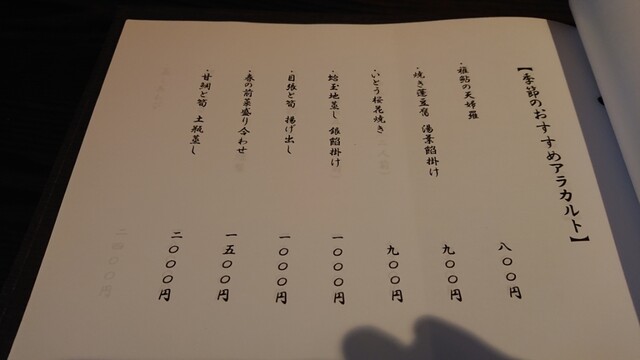 【季節のおすすめアラカルト】
・稚鮎の天婦羅 八〇〇円
・焼き蓮豆腐 湯葉餡掛け 九〇〇円
・いとう桜花焼き 九〇〇円
・蛤玉地蒸し 銀餡掛け 一〇〇〇円
・目張と筍 揚げ出し 一〇〇〇円
・春の前菜盛り合わせ 一五〇〇円
・甘鯛と筍 土瓶蒸し 二〇〇〇円